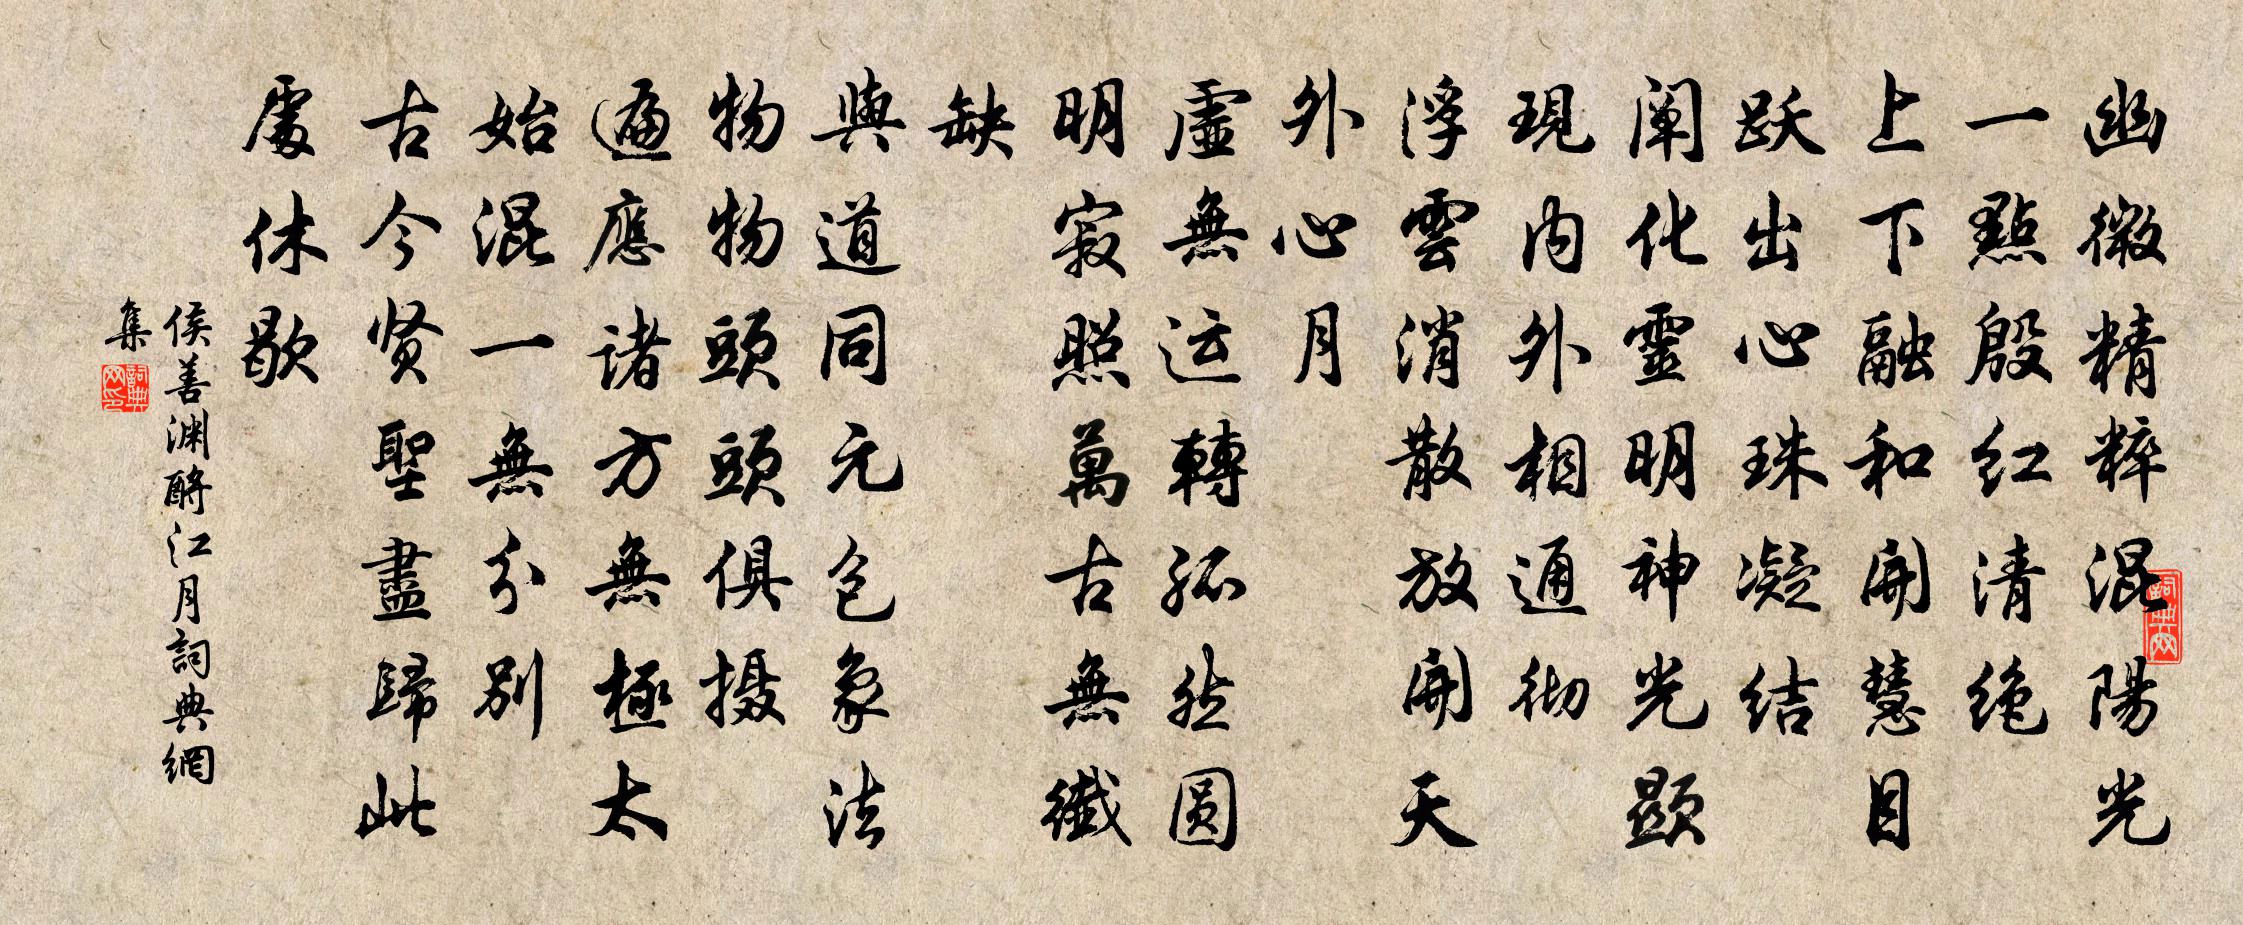 幽微精粹混陽光
一點殷红清绝
上下融和開慧目
跃出心珠凝结
阐化靈明神光顯
現内外相通彻
浮雲消散放開天
外心月
虚無运轉孤然圆
明寂照萬古無纖
缺
與道同元包象法
物物頭頭俱摄
遍應诸方無極太
始混一無分别
古今贤聖盡歸此
處休歇
侯善渊酹江月詞典網
集
詞典网
詞典网印